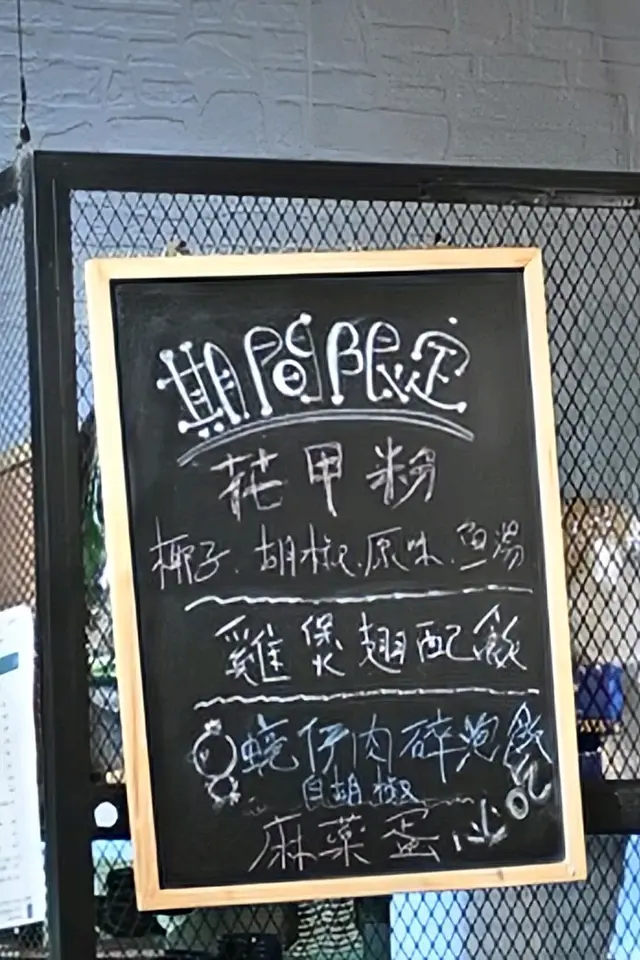 期間限定
花甲粉
椰子.胡椒.原味.魚湯
雞煲翅配飯
蠔仔肉碎泡飯
白胡椒
麻藥蛋